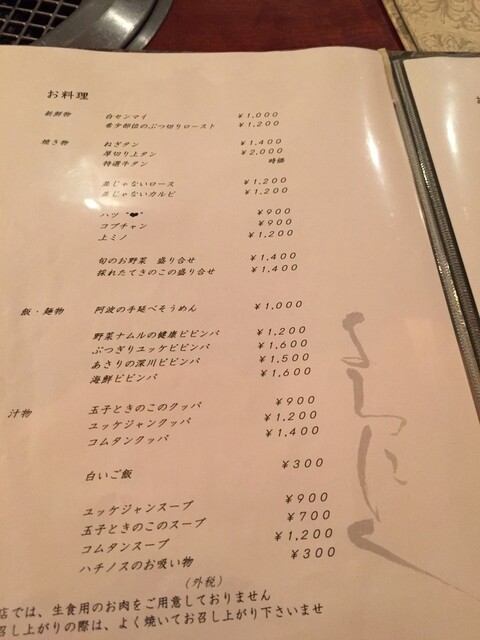 お料理
新鮮物 白センマイ ¥1,000
希少部位のぶつ切りロースト ¥1,200
焼き物 ねぎタン ¥1,400
厚切り上タン ¥2,000
特選牛タン 時価
並じゃないロース ¥1,200
並じゃないカルビ ¥1,200
ハツ "❤" ¥900
コプチャン ¥900
上ミノ ¥1,200
旬のお野菜 盛り合せ ¥1,400
採れたてきのこの盛り合せ ¥1,400
飯・麺物 阿波の手延べそうめん ¥1,000
野菜ナムルの健康ビビンバ ¥1,200
ぶつぎりユッケビビンバ ¥1,600
あさりの深川ビビンバ ¥1,500
海鮮ビビンバ ¥1,600
汁物 玉子ときのこのクッパ ¥900
ユッケジャンクッパ ¥1,200
コムタンクッパ ¥1,400
白いご飯 ¥300
ユッケジャンスープ ¥900
玉子ときのこのスープ ¥700
コムタンスープ ¥1,200
ハチノスのお吸い物 ¥300
(外税)
店では、生食用のお肉をご用意しておりません
召し上がりの際は、よく焼いてお召し上がり下さいませ
よろにく